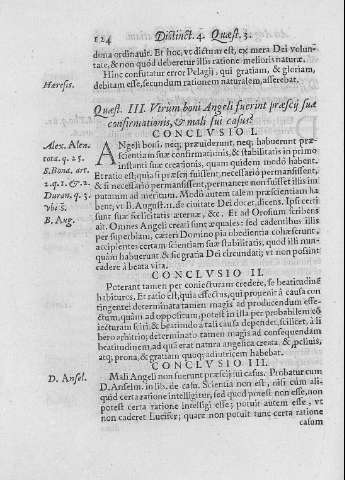 124 Distinct. 4. Quæst. 3.
dona ordinauit. Et hoc, vt dictum est, ex mera Dei volun-
tate, & non quòd deberetur illis ratione melioris naturæ.
Hinc confutatur error Pelagij, qui gratiam, & gloriam,
Hæresis.
debitam esse, secundum rationem naturalem, asserebat.
Quæst. III. Vtrùm boni Angeli fuerint præscij suæ
confirmationis, & mali sui casus?
CONCLVSIO I.
Alex. Alen.
tota. q. 25.
S. Bona. art.
2. q. 1. & 2.
Duran. q. 3.
Vbi S.
B. Aug.
ANgeli boni, neq; præuiderunt, neq; habuerunt præ-
scientiam suæ confirmationis, & stabilitatis in primo
instanti suæ creationis, quam quidem modò habent.
Et ratio est; quia si præscij fuissent, necessariò permansissent;
& si necessariò permansissent, permanere non fuisset illis im-
putatum ad meritum. Modò autem talem præscientiam ha-
bent, vt B. August. 11. de ciuitate Dei docet, dicens. Ipsi certi
sunt suæ fœlicitatis æternæ, &c. Et ad Orosium scribens
ait. Omnes Angeli creati sunt æquales: sed cadentibus illis
per superbiam, cæteri Domino pia obedientia cohæserunt,
accipientes certam scientiam suæ stabilitatis, quod illi nun-
quàm habuerunt, & sic gratia Dei circundati; vt non possint
cadere à beata vita.
CONCLVSIO II.
Poterant tamen per coniecturam credere, se beatitudinē
habituros. Et ratio est, quia effectus, qui prouenit à causa con
tingente, determinata tamen magis ad producendum effe-
ctum, quàm ad oppositum, potest in illa per probabilem cō
iecturam sciri; & beatitudo à tali causa dependet, scilicet, à li
bero arbitrio, determinato tamen magis ad consequendam
beatitudinem, ad quā erat natura angelica creata. &, peius,
atq; prona, & gratiam quoq; adiutricem habebat.
CONCLVSIO III.
D. Ansel.
Mali Angeli non fuerunt præscij sui casus. Probatur cum
D. Anselm. in lib. de casu. Scientia non est, nisi cùm ali-
quid certa ratione intelligitur, sed quod potest non esse, non
potest certa ratione intelligi esse; potuit autem esse, vt
non caderet Lucifer; quare non potuit tunc certa ratione
casum